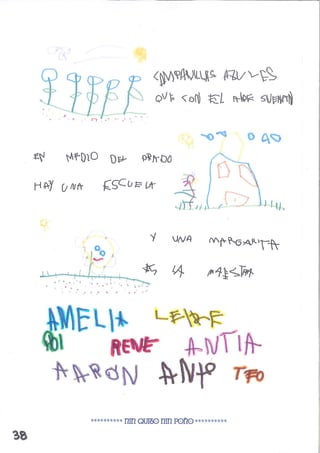 CAMPANILLAS AZULES
QUE CON EL AIRE SUENAN
EN MEDIO DEL PRADO
HAY UNA ESCUELA
Y UNA MARGARITA
ES LA MAESTRA
AMELIA
POI RENE ANTIA
AARON TEO
38